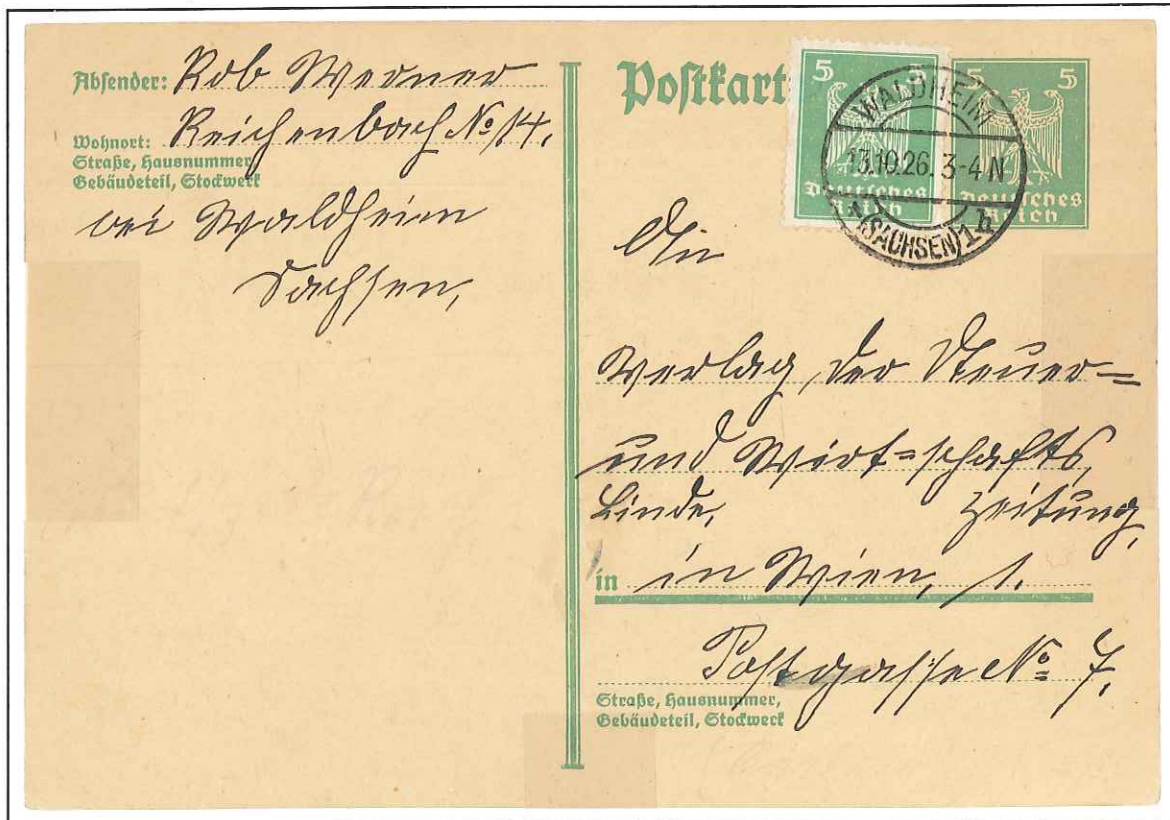 Absender: Rob Werner
Wohnort: Reichenbach No 14.
Straße, Hausnummer
Gebäudeteil, Stockwerk
bei Waldheim
Sachsen,
Postkart
5 5
Deutsches
Reich
5 5
Deutsches
Reich
WALDHEIM
13.10.26. 3-4 N
(SACHSEN) 1h
An
Verlag der Steuer=
und Wirt=schafts,
Linde, Zeitung,
in in Wien, 1.
Postgasse No 7.
Straße, Hausnummer,
Gebäudeteil, Stockwerk